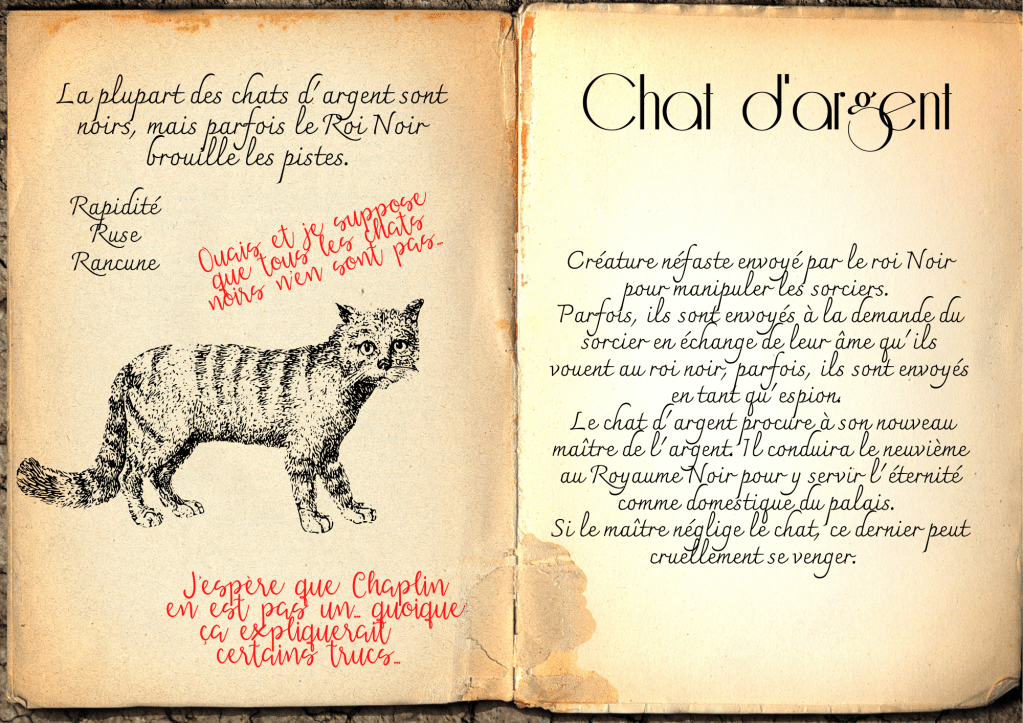 La plupart des chats d'argent sont
noirs, mais parfois le Roi Noir
brouille les pistes.
Rapidité
Ruse
Rancune
Ouais et je suppose
que tous les chats
noirs n'en sont pas...
J'espère que Chaplin
en est pas un... quoique
ça expliquerait
certains trucs...
Chat d'argent
Créature néfaste envoyé par le roi Noir
pour manipuler les sorciers.
Parfois, ils sont envoyés à la demande du
sorcier en échange de leur âme qu'ils
vouent au roi noir; parfois, ils sont envoyés
en tant qu'espion.
Le chat d'argent procure à son nouveau
maître de l'argent. Il conduira le neuvième
au Royaume Noir pour y servir l'éternité
comme domestique du palais.
Si le maître néglige le chat, ce dernier peut
cruellement se venger.